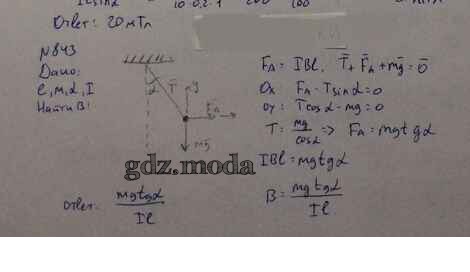 Ответ: 20 мТл
N843
Дано:
l, m, α, I
Найти B!
α T̄ y
F̄A
mḡ
FA = IBl, T̄ + F̄A + mḡ = 0̄
Ox: FA - T sinα = 0
Oy: T cosα - mg = 0
T = mg/cosα => FA = mg tgα
IBl = mg tgα
B = mg tgα / Il
gdz.moda
Ответ: mg tgα / Il